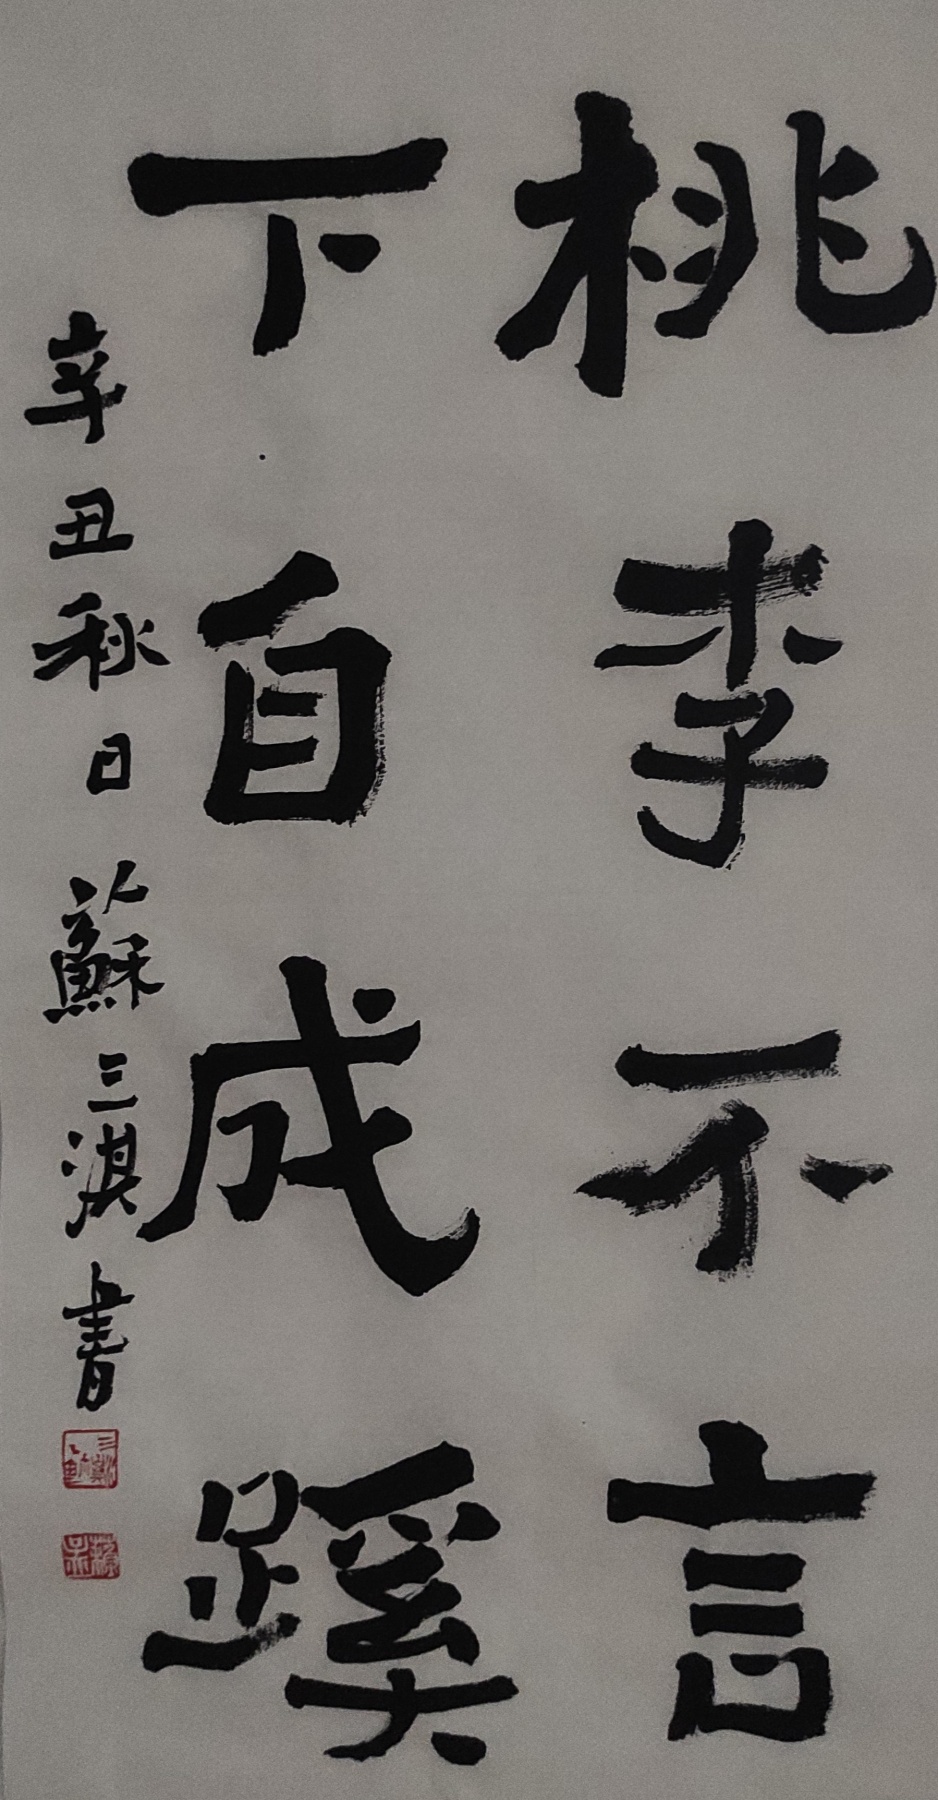 桃李不言
下自成蹊
辛丑秋日蘇三淇書